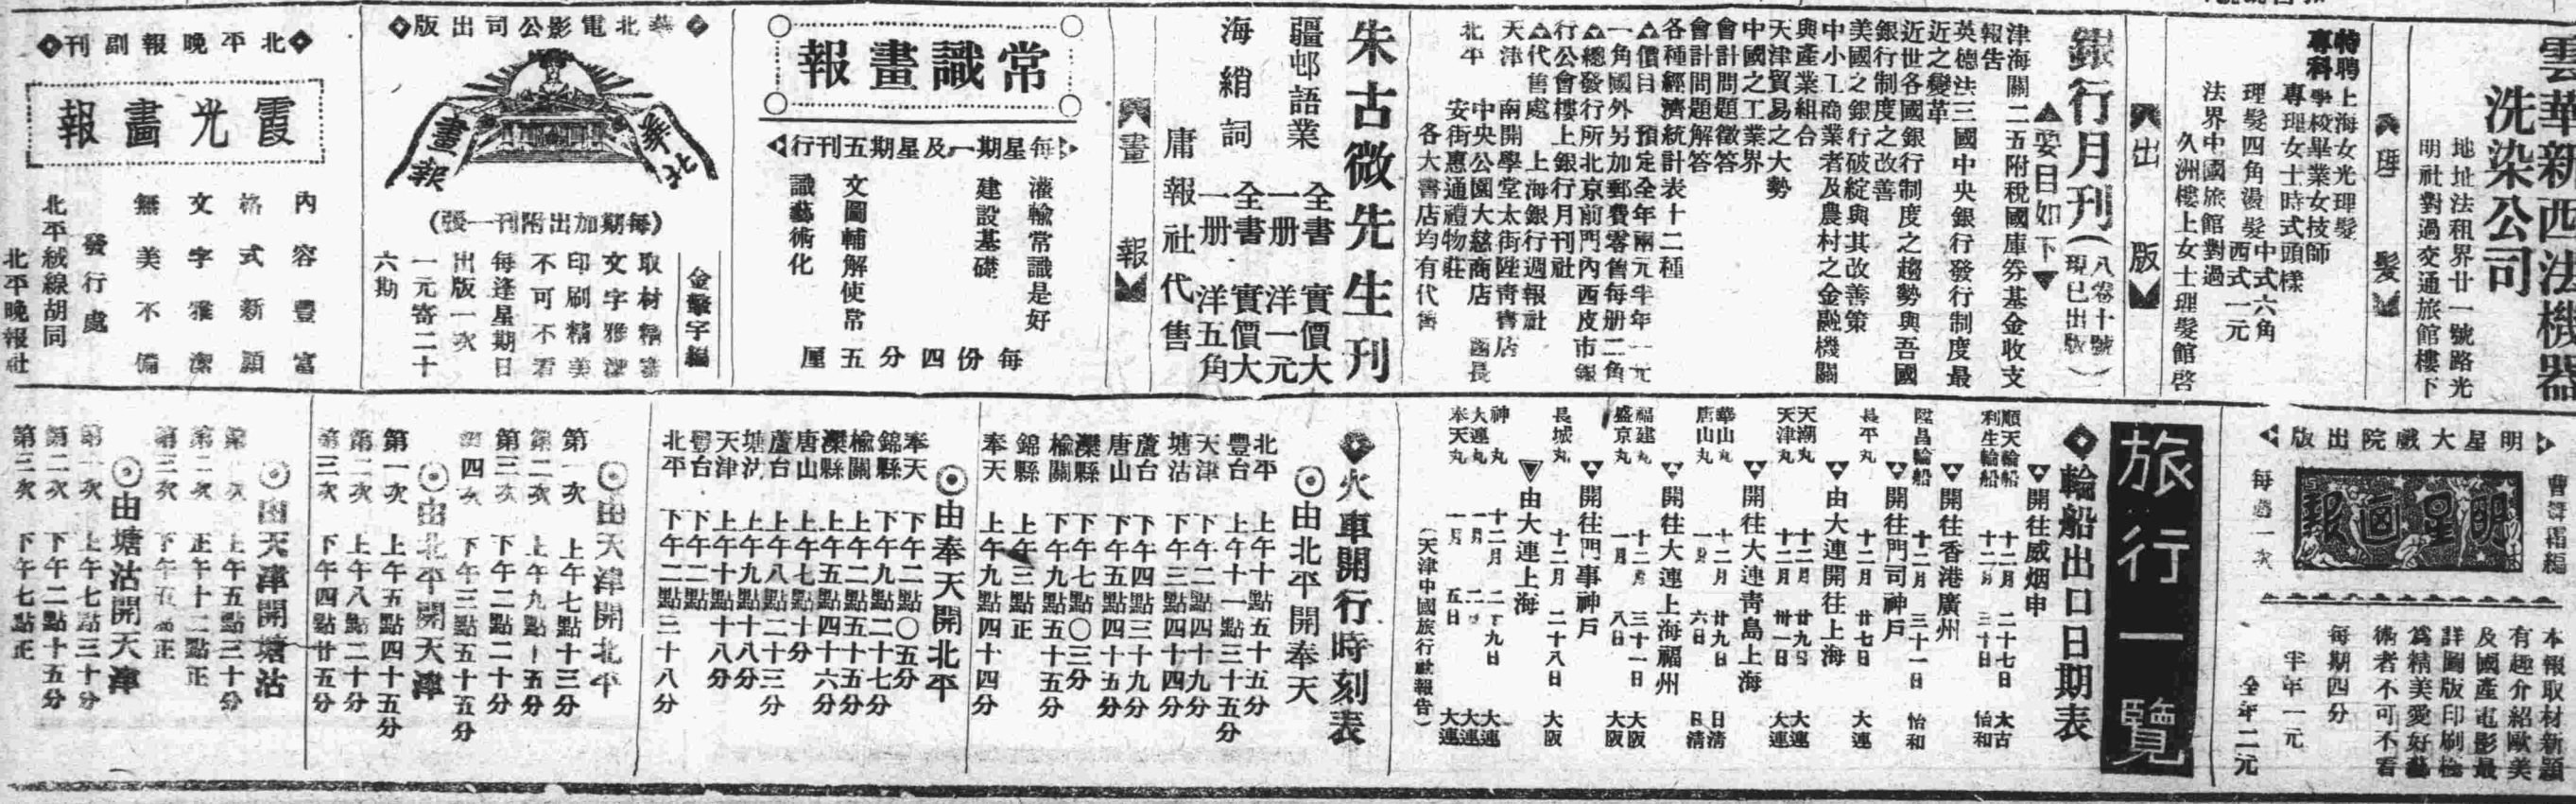 雲華新西法機器
洗染公司
地址法租界廿一號路光
明社對過交通旅館樓下
理髮
特聘上海女光理髮
專科學校畢業女技師
專理女士時式頭樣
理髮四角燙髮
中式六角
西式一元
法界中國旅館對過
久洲樓上女士理髮館啓
出版
銀行月刊
(八卷十號)
(現已出版)
▲要目如下▼
津海關二五附稅國庫券基金收支
報告
英德法三國中央銀行發行制度最
近之變革
近世各國銀行制度之趨勢與吾國
銀行制度之改善
美國之銀行破綻與其改善策
中小工商業者及農村之金融機關
與產業組合
天津貿易之大勢
中國之工業界
會計問題徵答
會計問題解答
各種經濟統計表十二種
▲價目 預定全年兩元半年一元
一角國外另加郵費零售每册二角
▲總發行所北京前門內西皮市銀
行公會樓上銀行月刊社
▲代售處 上海銀行週報社
天津 南開學堂太街陞靑書店
北平 中央公園大慈商店
安街惠通禮物莊
各大書店均有代售
朱古微先生刊
疆邨語業 全書一册 實價大洋一元
海綃詞 全書一册 實價大洋五角
庸報社代售
畫報
常識畫報
每星期一及星期五刊行
灌輸常識是好
建設基礎
文圖輔解使常
識藝術化
每份四分五厘
華北電影公司出版
華北畫報
(每期加出附刊一張)
金擎宇編
取材精審
文字雅潔
印刷精美
不可不看
每逢星期日
出版一次
一元寄二十
六期
北平晚報副刊
霞光畫報
內容豐富
格式新穎
文字雅潔
無美不備
發行處
北平絨線胡同
北平晚報社
明星大戲院出版
明星画報
每週一次
本報取材新穎
有趣介紹歐美
及國產電影最
詳圖版印刷極
爲精美愛好藝
術者不可不看
每期四分
半年一元
全年二元
旅行一覽
輪船出口日期表
▲開往威烟申
順天輪船 十二月 二十七日 太古
利生輪船 十二月 三十日 怡和
▲開往香港廣州
陞昌輪船 十二月 三十一日 怡和
▲開往門司神戶
長平丸 十二月 廿七日 大連
▲由大連開往上海
天潮丸 十二月 廿九日 大連
天津丸 十二月 卅一日 大連
▲開往大連靑島上海
華山丸 十二月 廿九日 日清
唐山丸 一月 六日 日清
▲開往大連上海福州
福建丸 十二月 三十一日 大阪
盛京丸 一月 八日 大阪
▲開往門事神戶
長城丸 十二月 二十八日 大阪
▼由大連上海
神丸 十二月 二十九日 大連
大連丸 一月 二日 大連
奉天丸 一月 五日 大連
(天津中國旅行社報告)
火車開行時刻表
由北平開奉天
北平 上午十點五十五分
豐台 上午十一點三十五分
天津 下午二點四十九分
塘沽 下午三點四十四分
蘆台 下午四點三十九分
唐山 下午五點四十五分
灤縣 下午七點〇三分
榆關 下午九點五十五分
錦縣 上午三點正
奉天 上午九點四十四分
由奉天開北平
奉天 下午二點〇五分
錦縣 下午九點二十七分
榆關 上午二點五十五分
灤縣 上午五點四十六分
唐山 上午七點十分
蘆台 上午八點二十三分
塘沽 上午九點十八分
天津 上午十點十八分
豐台 下午二點
北平 下午二點三十八分
由天津開北平
第一次 上午七點十三分
第二次 上午九點十五分
第三次 下午二點二十分
第四次 下午三點五十五分
由北平開天津
第一次 上午五點四十五分
第二次 上午八點二十分
第三次 下午四點廿五分
由天津開塘沽
第一次 上午五點三十分
第二次 正午十二點正
第三次 下午五點正
由塘沽開天津
第一次 上午七點三十分
第二次 下午二點十五分
第三次 下午七點正